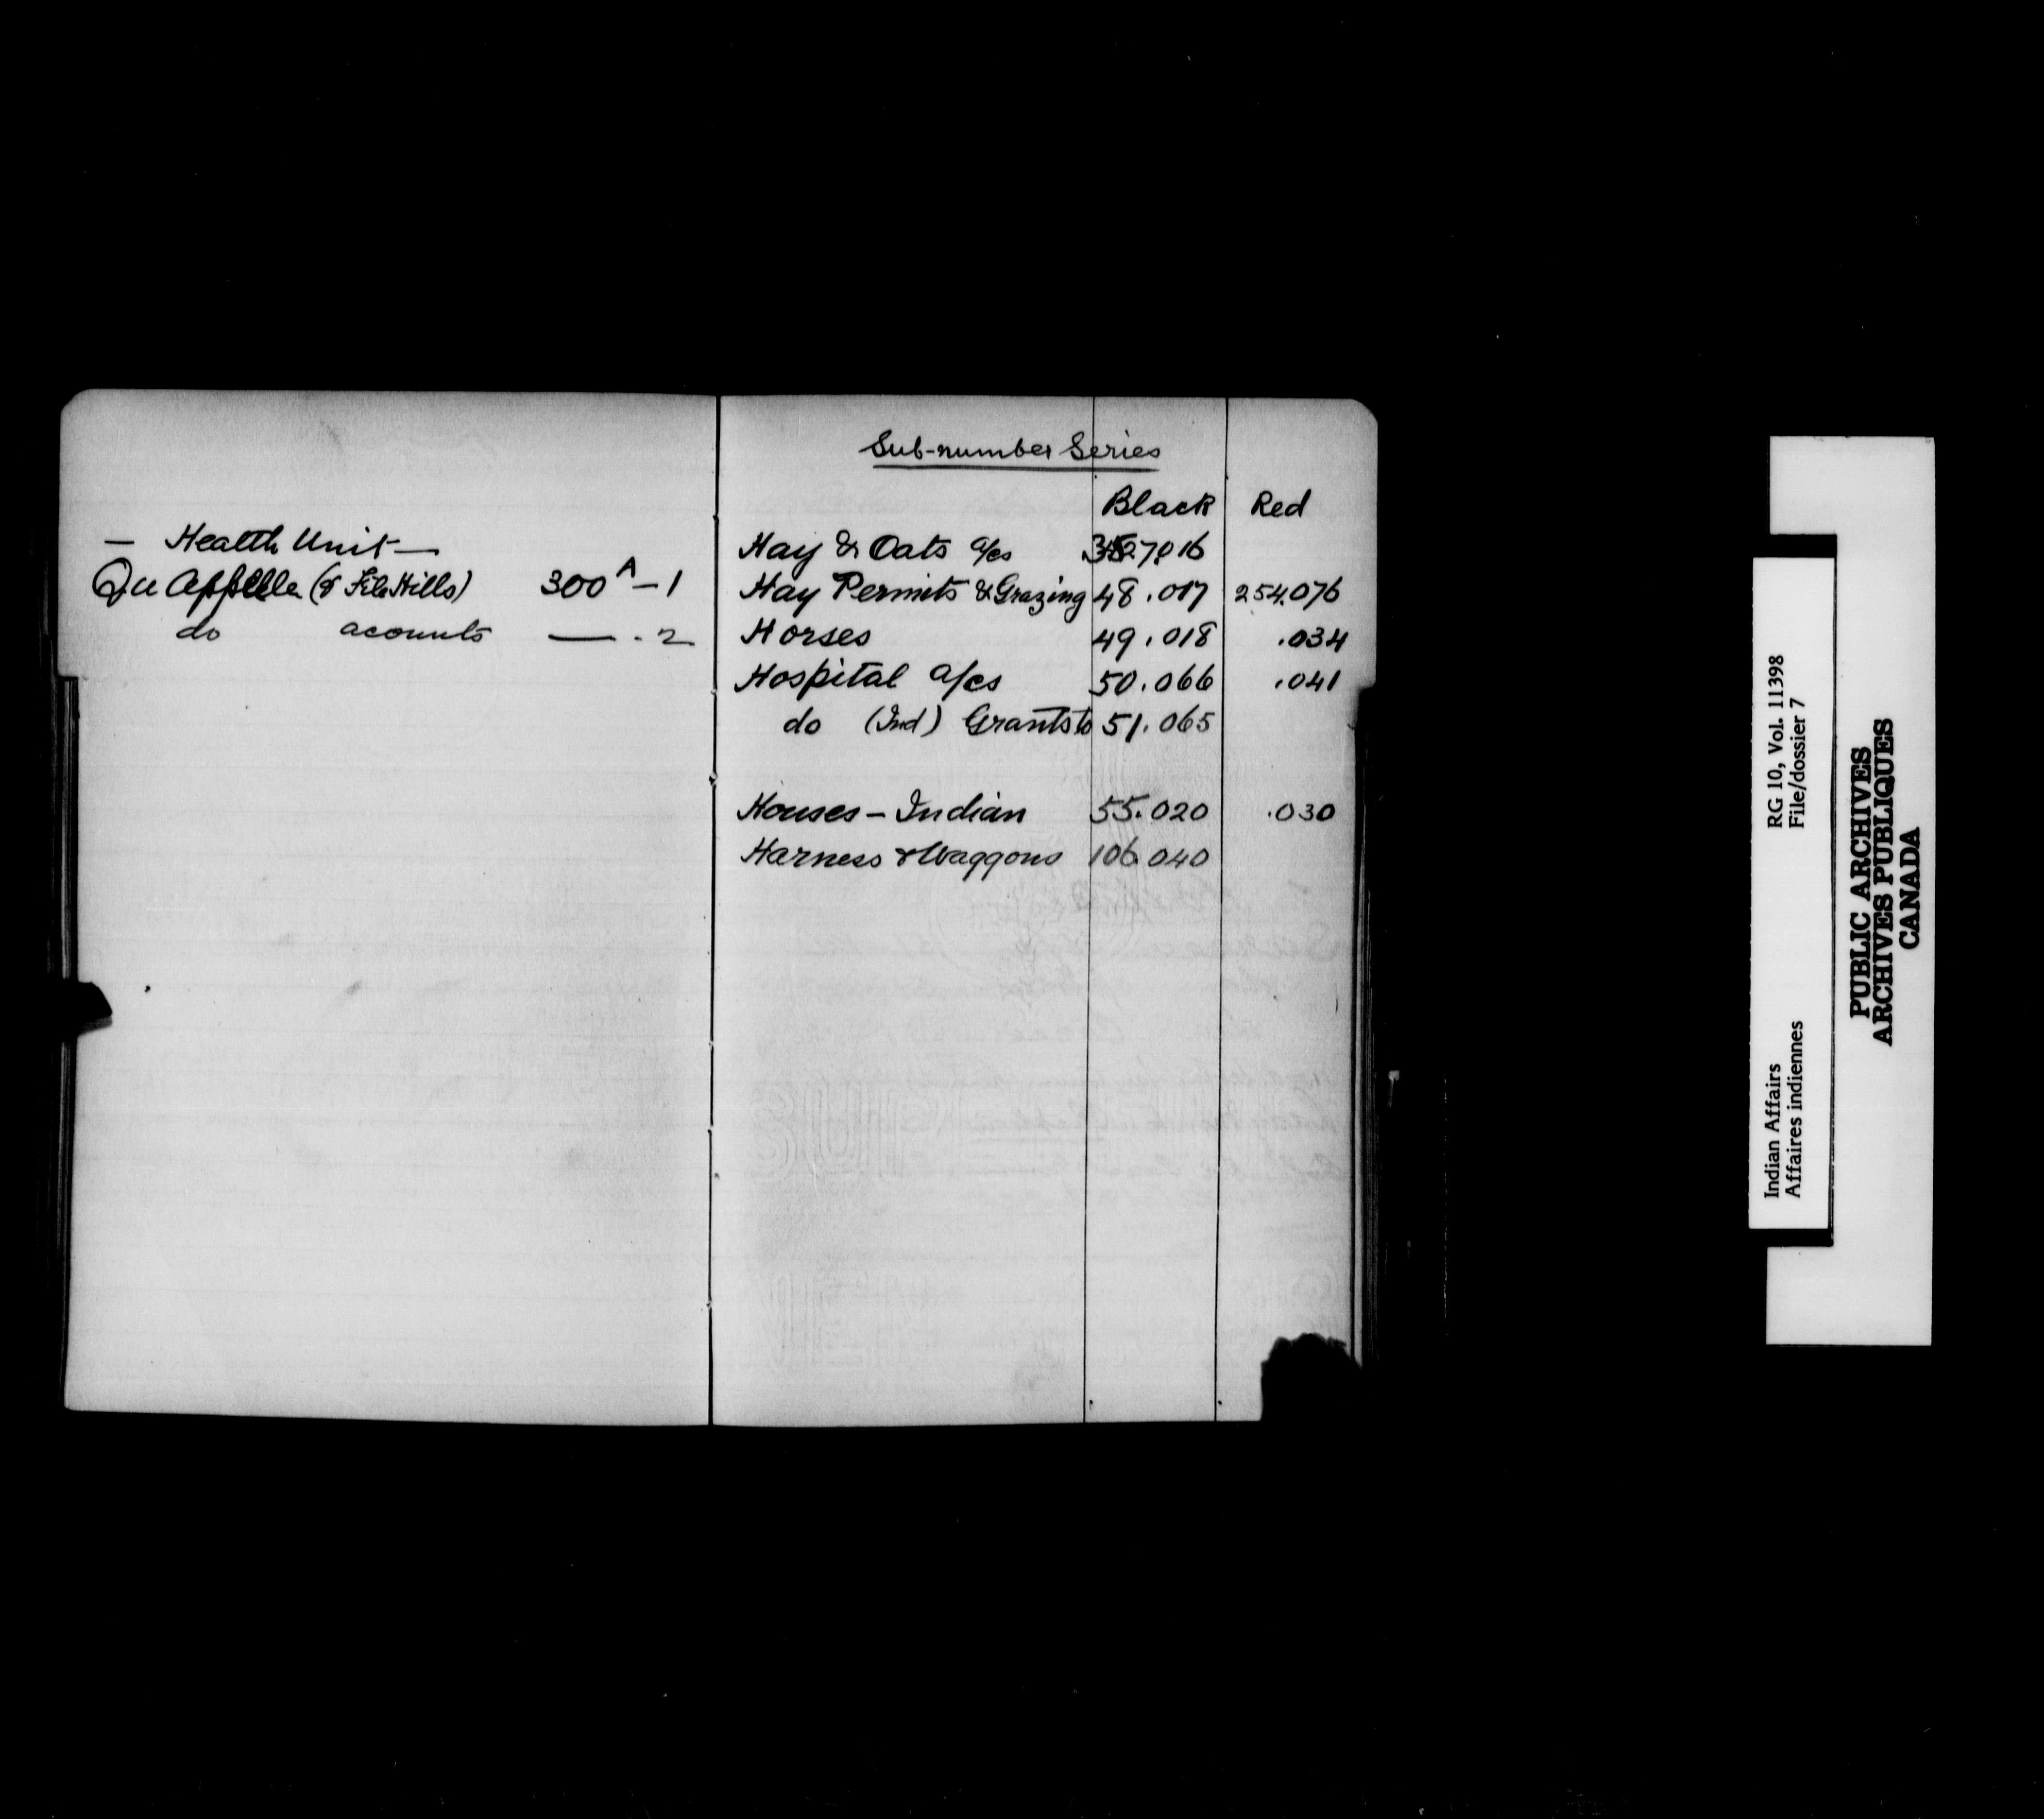 — Health Unit —
Qu Appelle (& File Hills) 300 A - 1
do acounts — . 2
Sub-number Series
Black Red
Hay & Oats a/cs
Hay Permits & Grazing 48.017 254.076
Horses 49.018 .034
Hospital a/cs 50.066 .041
do (Ind) Grants to 51.065
Houses - Indian 55.020 .030
Harness & Waggons 106.040
Indian Affairs RG 10, Vol. 11398
Affaires indiennes File/dossier 7
PUBLIC ARCHIVES
ARCHIVES PUBLIQUES
CANADA